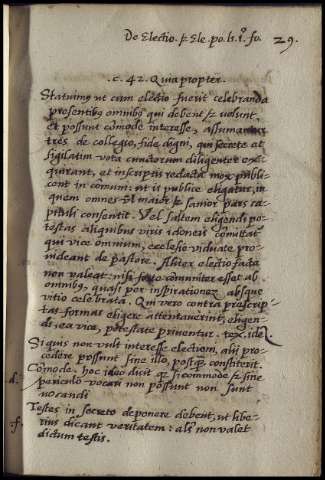 De Electio. & Ele. po. li. i. fo. 29.
.c. 42. Quia propter.
Statuimus ut cum electio fuerit celebranda
presentibus omnibus qui debent & volunt
et possunt cōmode interesse, assumantur
tres de collegio, fide digni, qui secrete et
sigilatim vota cunctorum diligenter exq̄-
quirant, et inscriptis redacta mox publi-
cent in comuni: ut is publice eligatur, in
quem omnes vl maior & sanior pars ca-
pituli consentit. Vel saltem eligendi po-
testas aliquibus viris idoneis comittat
qui vice omnium, ecclesie viduate pro-
videant de pastore. Aliter electio facta
non valeat: nisi forte comuniter esset ab
omnibus, quasi per inspirationem absque
vitio celebrata. Qui vero contra prescrip-
tas formas eligere attentaverint, eligen-
di ea vice, potestate priventur. tex. idem
Si quis non vult interesse electioni, alii pro-
cedere possunt sine illo, postq̄ constiterit.
Cōmode. hoc ideo dicit q̄ si commode & sine
d. periculo vocari non possunt non sunt
vocandi
Testes in secreto deponere debent, ut libe-
.f. rius dicant veritatem: als non valet
dictum testis.